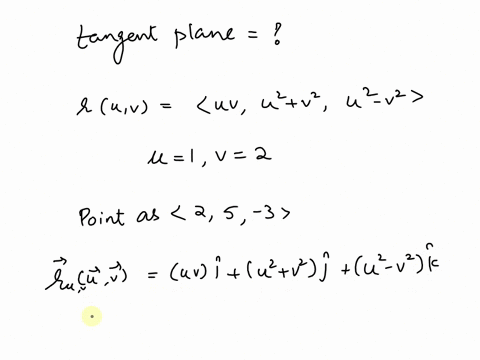 tangent plane = ?
r(u,v) = <uv, u²+v², u²-v²>
u=1, v=2
Point as <2, 5, -3>
r⃗u,v(u⃗,v⃗) = (uv) î + (u²+v²) ĵ + (u²-v²) k̂